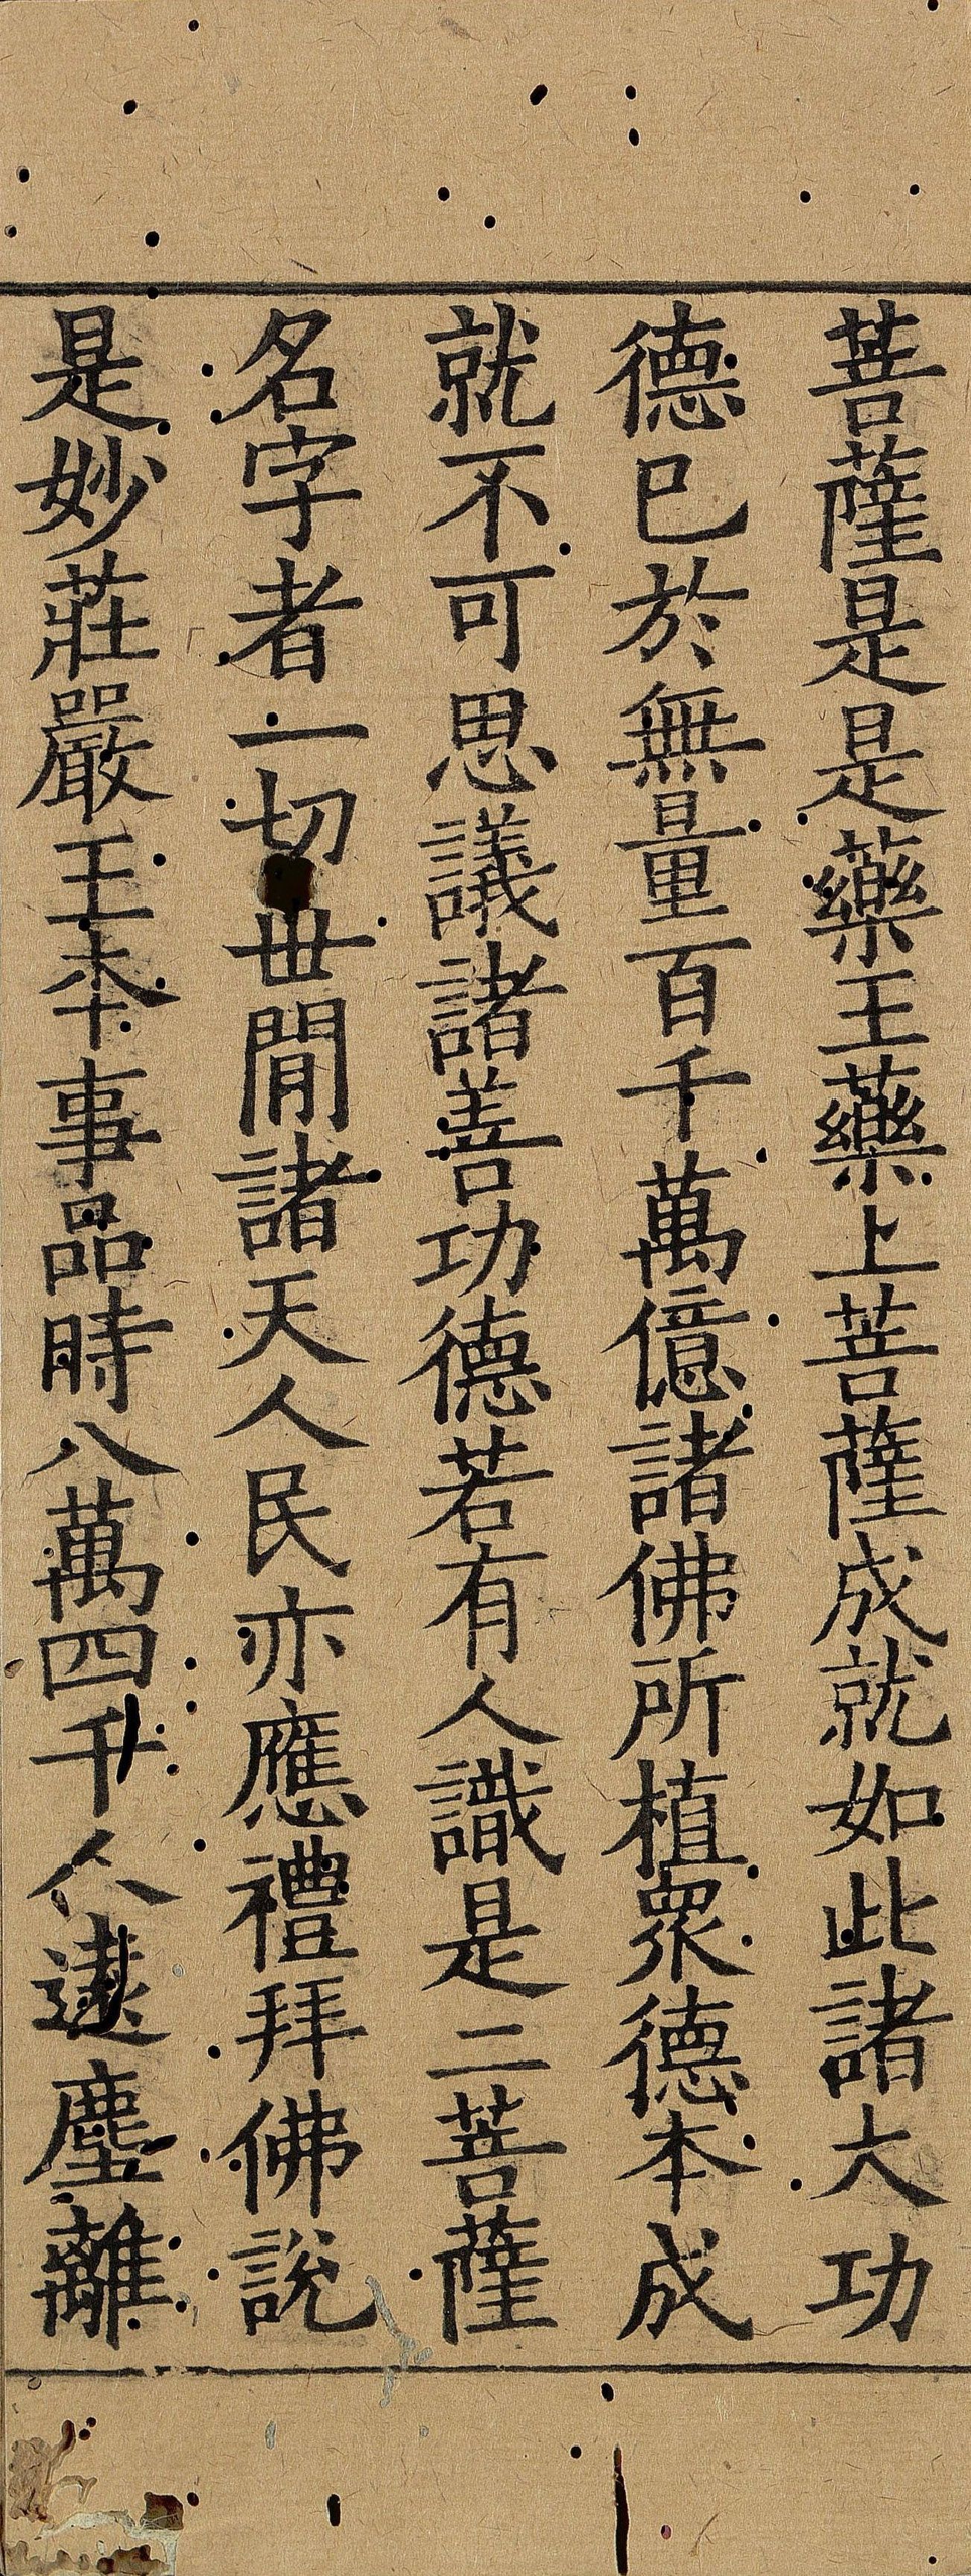 菩薩是是藥王藥上菩薩成就如此諸大功
德已於無量百千萬億諸佛所植衆德本成
就不可思議諸善功德若有人識是二菩薩
名字者一切世閒諸天人民亦應禮拜佛說
是妙莊嚴王夲事品時八萬四千人遠塵離